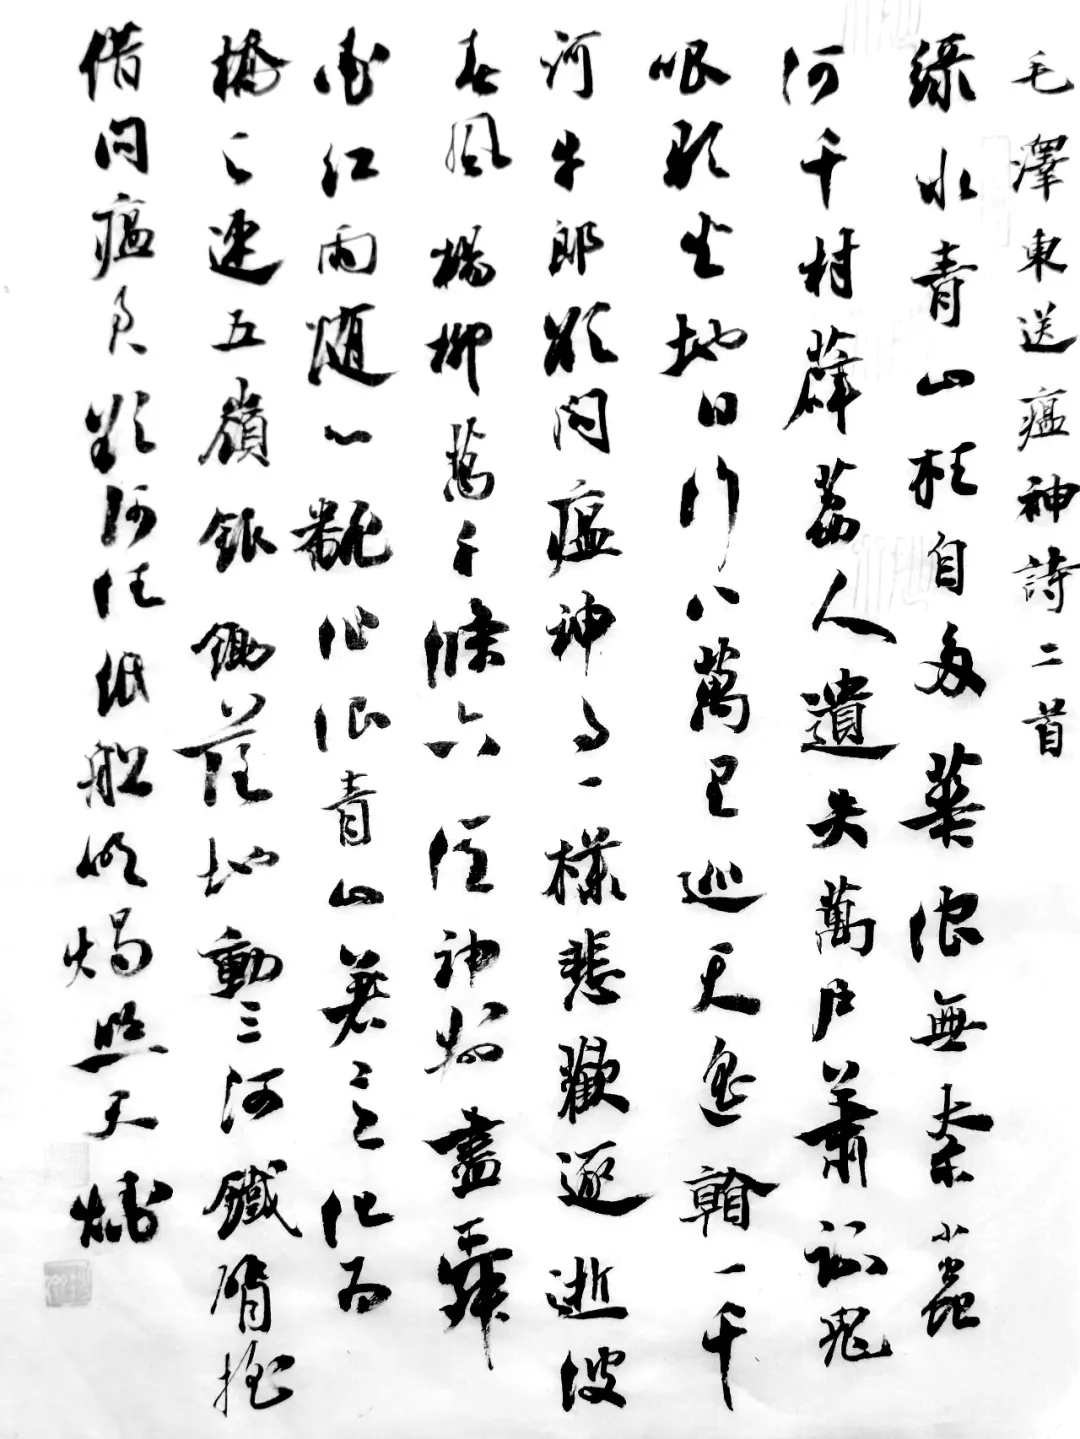 毛澤東送瘟神詩二首
綠水青山枉自多華佗無奈小蟲
何千村薜荔人遺失萬戶蕭疏鬼
唱歌坐地日行八萬里巡天遙看一千
河牛郎欲問瘟神事一樣悲歡逐逝波
春風楊柳萬千條六億神州盡舜
堯紅雨隨心翻作浪青山着意化為
橋天連五嶺銀鋤落地動三河鐵臂搖
借問瘟君欲何往紙船明燭照天燒